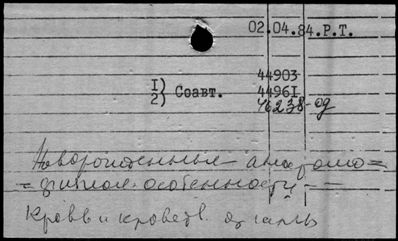 02.04.84.Р.Т.
1) 44903
2) Соавт. 44961
46238-од
Новорожденные – анатомо=
=физиол. особенности –
Кровь и кроветв. органы